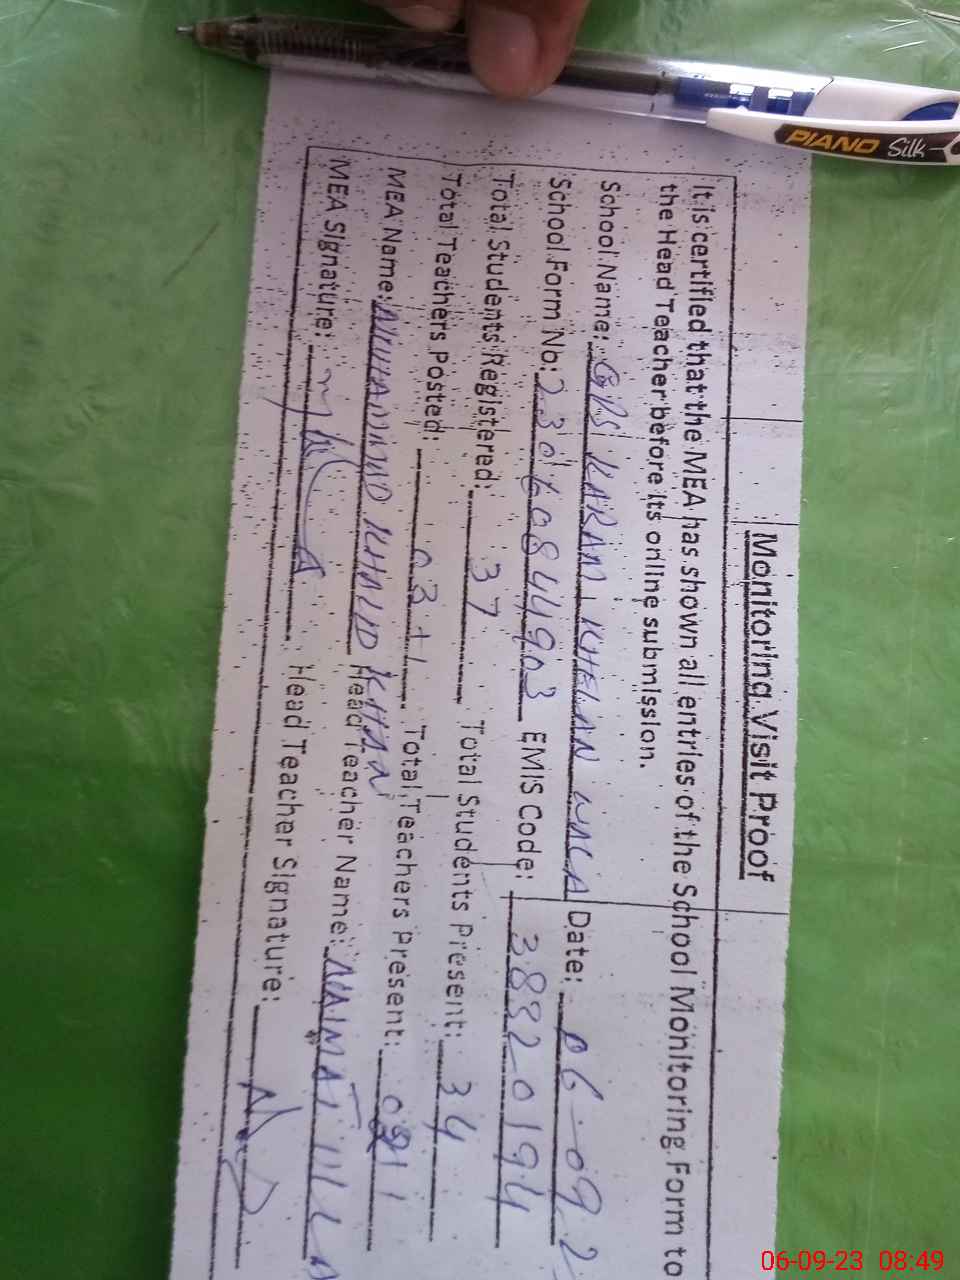 PIANO Silk
Monitoring Visit Proof
It is certified that the MEA has shown all entries of the School Monitoring Form to
the Head Teacher before its online submission.
School Name: GPS KARAM KHELAN WALA Date: 06-09-2
School Form No: 23060844903 EMIS Code: 38820194
Total Students Registered: 37 Total Students Present: 34
Total Teachers Posted: 03+1 Total Teachers Present:
MEA Name: MUHAMMAD KHALID KHAN Head Teacher Name: NAIMATULLA
MEA Signature: Head Teacher Signature:
06-09-23 08:49